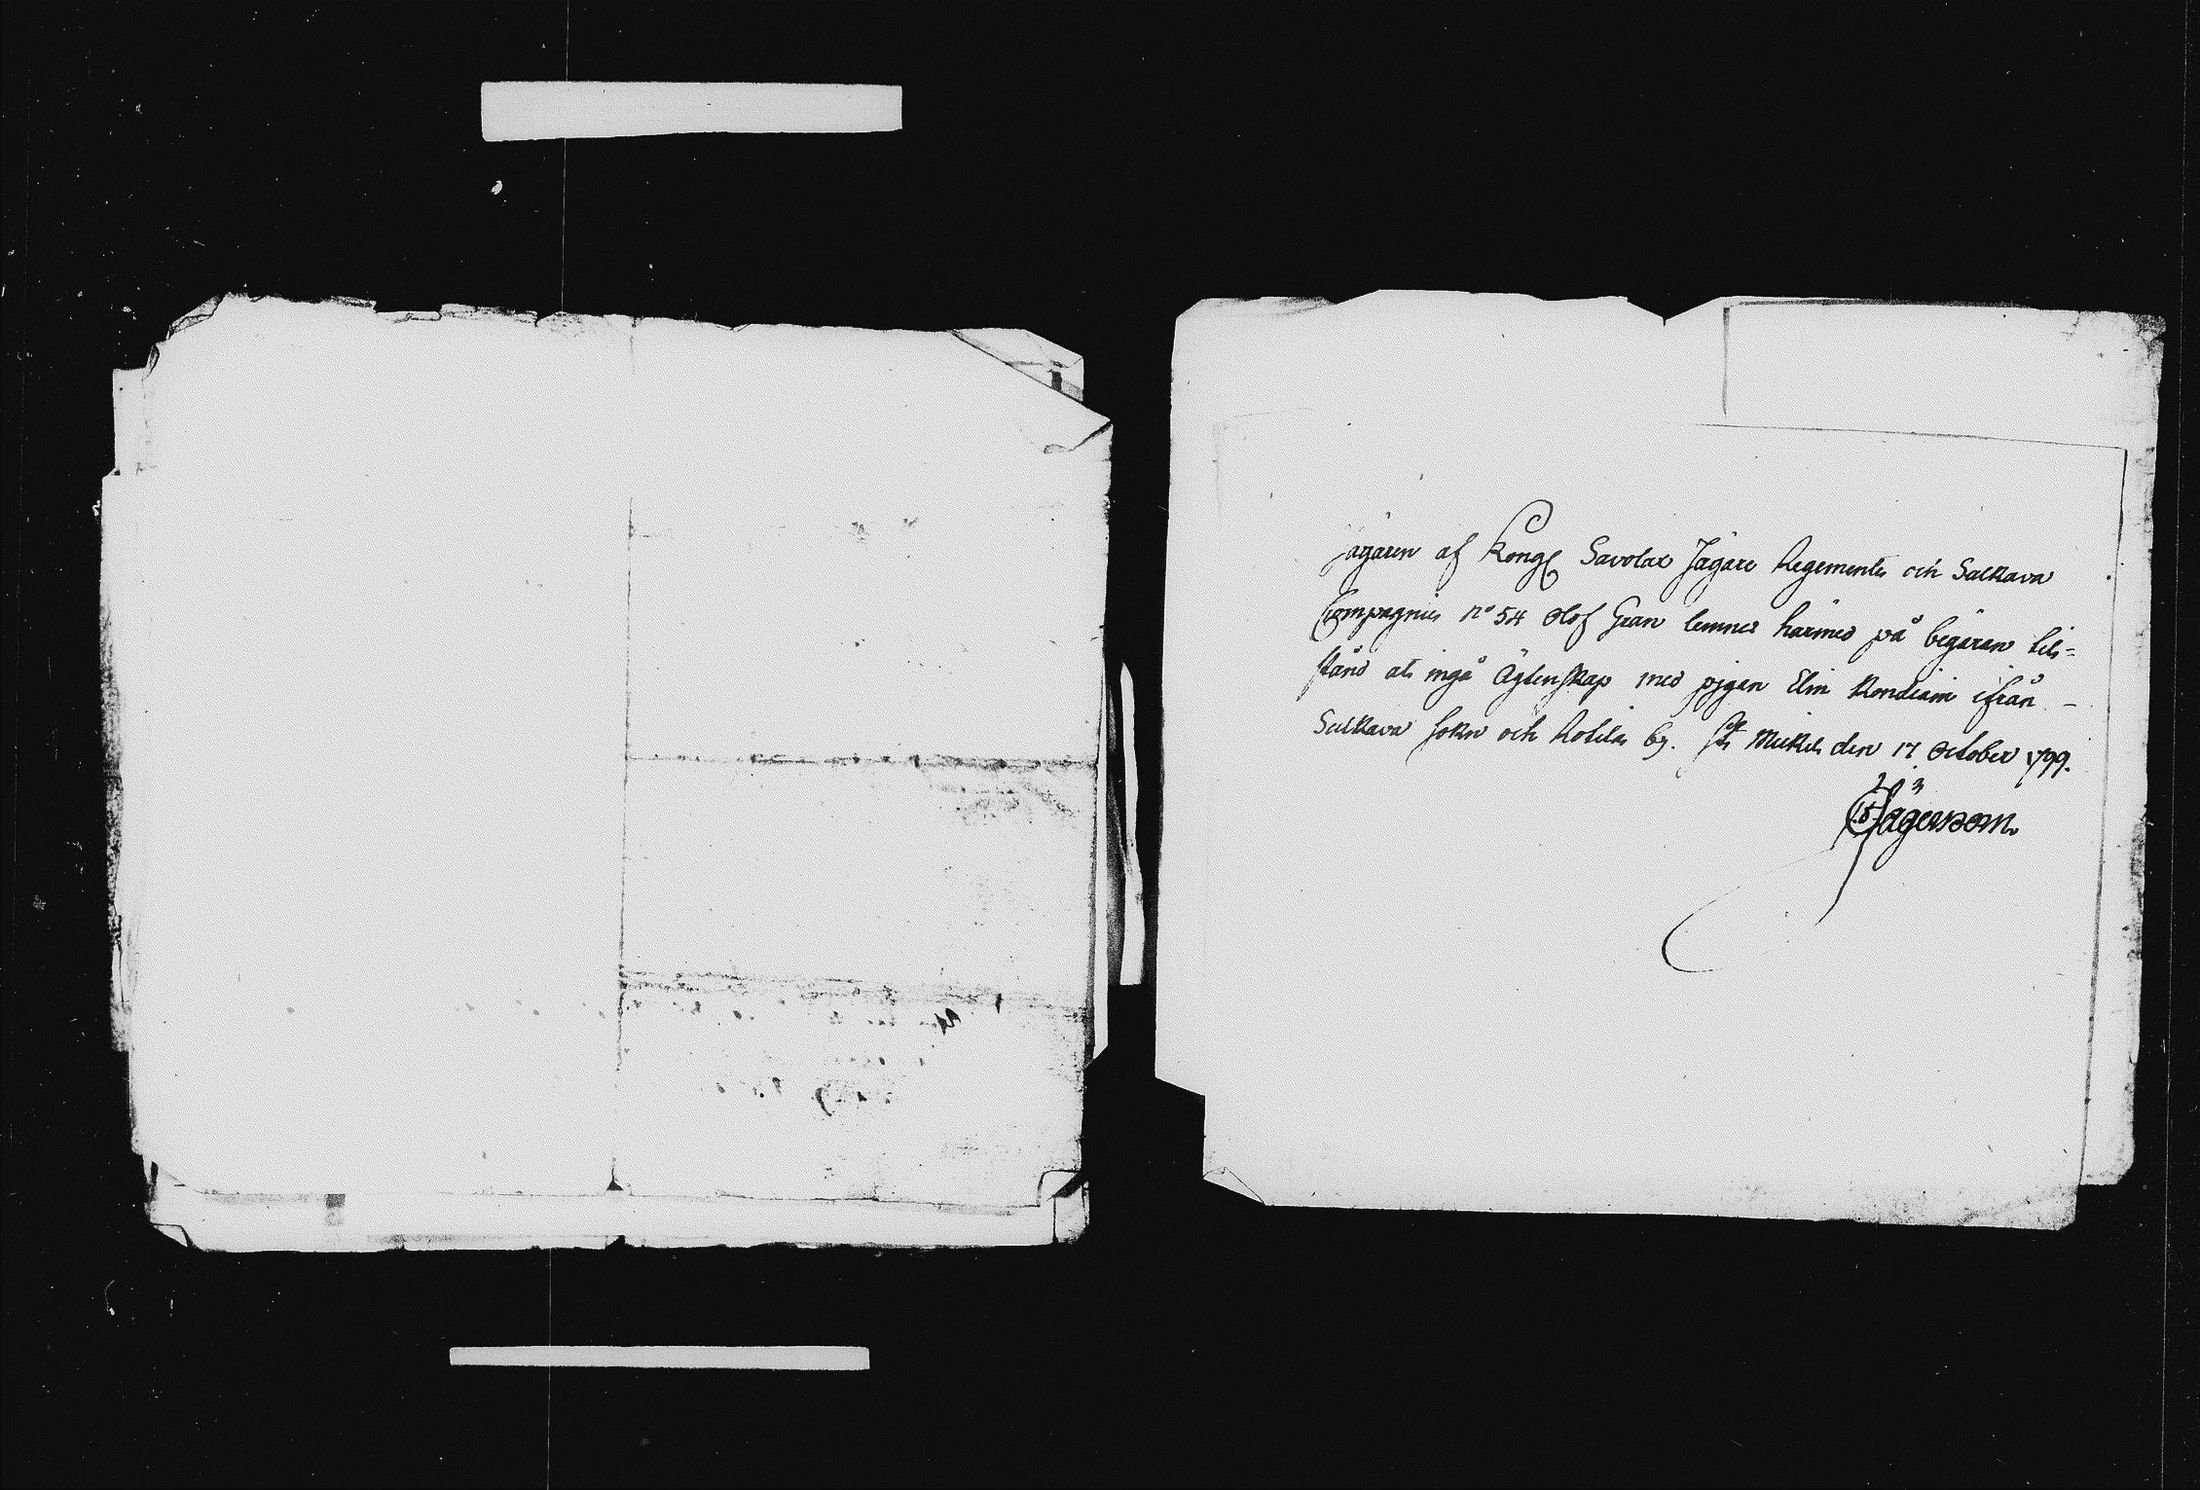 Jägaren af Kongl Savolax Jägare Regemente och Sulkava
Compagnie No 54 Olof Gran lemnes härmed på begäran til=
stånd at ingå Ägtenskap med pigan Elin Kondiain ifrån –
Sulkava Sokn och Rotila by. St Mickel den 17 October 1799.
Jägerhorn.